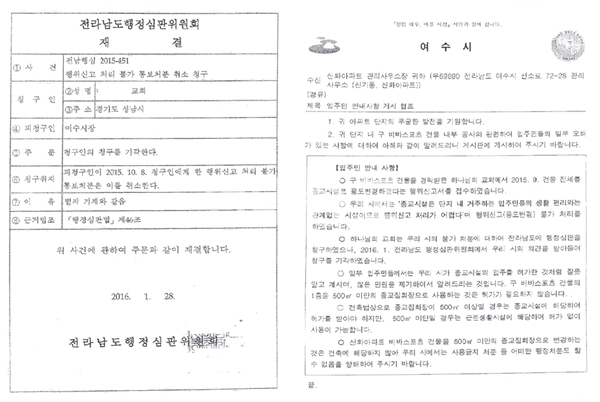 전라남도행정심판위원회
재 결
① 사 건
전남행심 2015-451
행위신고 처리 불가 통보처분 취소 청구
청 구 인
② 성 명 : 교회
③ 주 소 경기도 성남시
④ 피청구인 여수시장
⑤ 주 문 청구인의 청구를 기각한다.
⑥ 청구취지
피청구인이 2015. 10. 8. 청구인에게 한 행위신고 처리 불가
통보처분은 이를 취소한다.
⑦ 이 유 별지 기재와 같음
⑧ 근거법조 「행정심판법」 제46조
위 사건에 관하여 주문과 같이 재결합니다.
2016. 1. 28.
전라남도행정심판위원회
여 수 시
수신 신화아파트 관리사무소장 귀하 (우59690 전라남도 여수시 선소로 72-28 관리
사무소 (신기동, 신화아파트))
(경유)
제목 입주민 안내사항 게시 협조
1. 귀 아파트 단지의 무궁한 발전을 기원합니다.
2. 귀 단지 내 구 비바스포츠 건물 내부 공사와 관련하여 입주민들의 일부 오해
가 있는 사항에 대하여 아래와 같이 알려드리니 게시판에 게시하여 주시기 바랍니다.
【입주민 안내 사항】
○ 구 비바스포츠 건물을 경락받은 하나님의 교회에서 2015. 9. 건물 전체를
종교시설로 용도변경하겠다는 행위신고서를 접수하였습니다.
○ 우리 시에서는 "종교시설은 단지 내 거주하는 입주민들의 생활 편리와는
관계없는 시설이므로 행위신고 처리가 어렵다"며 행위신고(용도변경) 불가 처리를
하였습니다.
○ 하나님의 교회는 우리 시의 불가 처분에 대하여 전라남도에 행정심판을
청구하였으나, 2016. 1. 전라남도 행정심판위원회에서 우리 시의 의견을 받아들여
청구를 기각하였습니다.
○ 일부 입주민들께서는 우리 시가 종교시설의 입주를 허가한 것처럼 잘못
알고 계시며, 많은 민원을 제기하여서 알려드리는 것입니다. 구 비바스포츠 건물의
1층을 500㎡ 미만의 종교집회장으로 사용하는 것은 허가가 필요하지 않습니다.
○ 건축법상으로 종교집회장이 500㎡ 이상일 경우는 종교시설에 해당하여
허가를 받아야 하지만, 500㎡ 미만일 경우는 근린생활시설에 해당하여 허가 없이
사용이 가능합니다.
○ 신화아파트 비바스포츠 건물을 500㎡ 미만의 종교집회장으로 변경하는
것은 건축에 해당하지 않아 우리 시에서는 사용금지 처분 등 어떠한 행정처분도 할
수 없음을 양해하여 주시기 바랍니다.
끝.